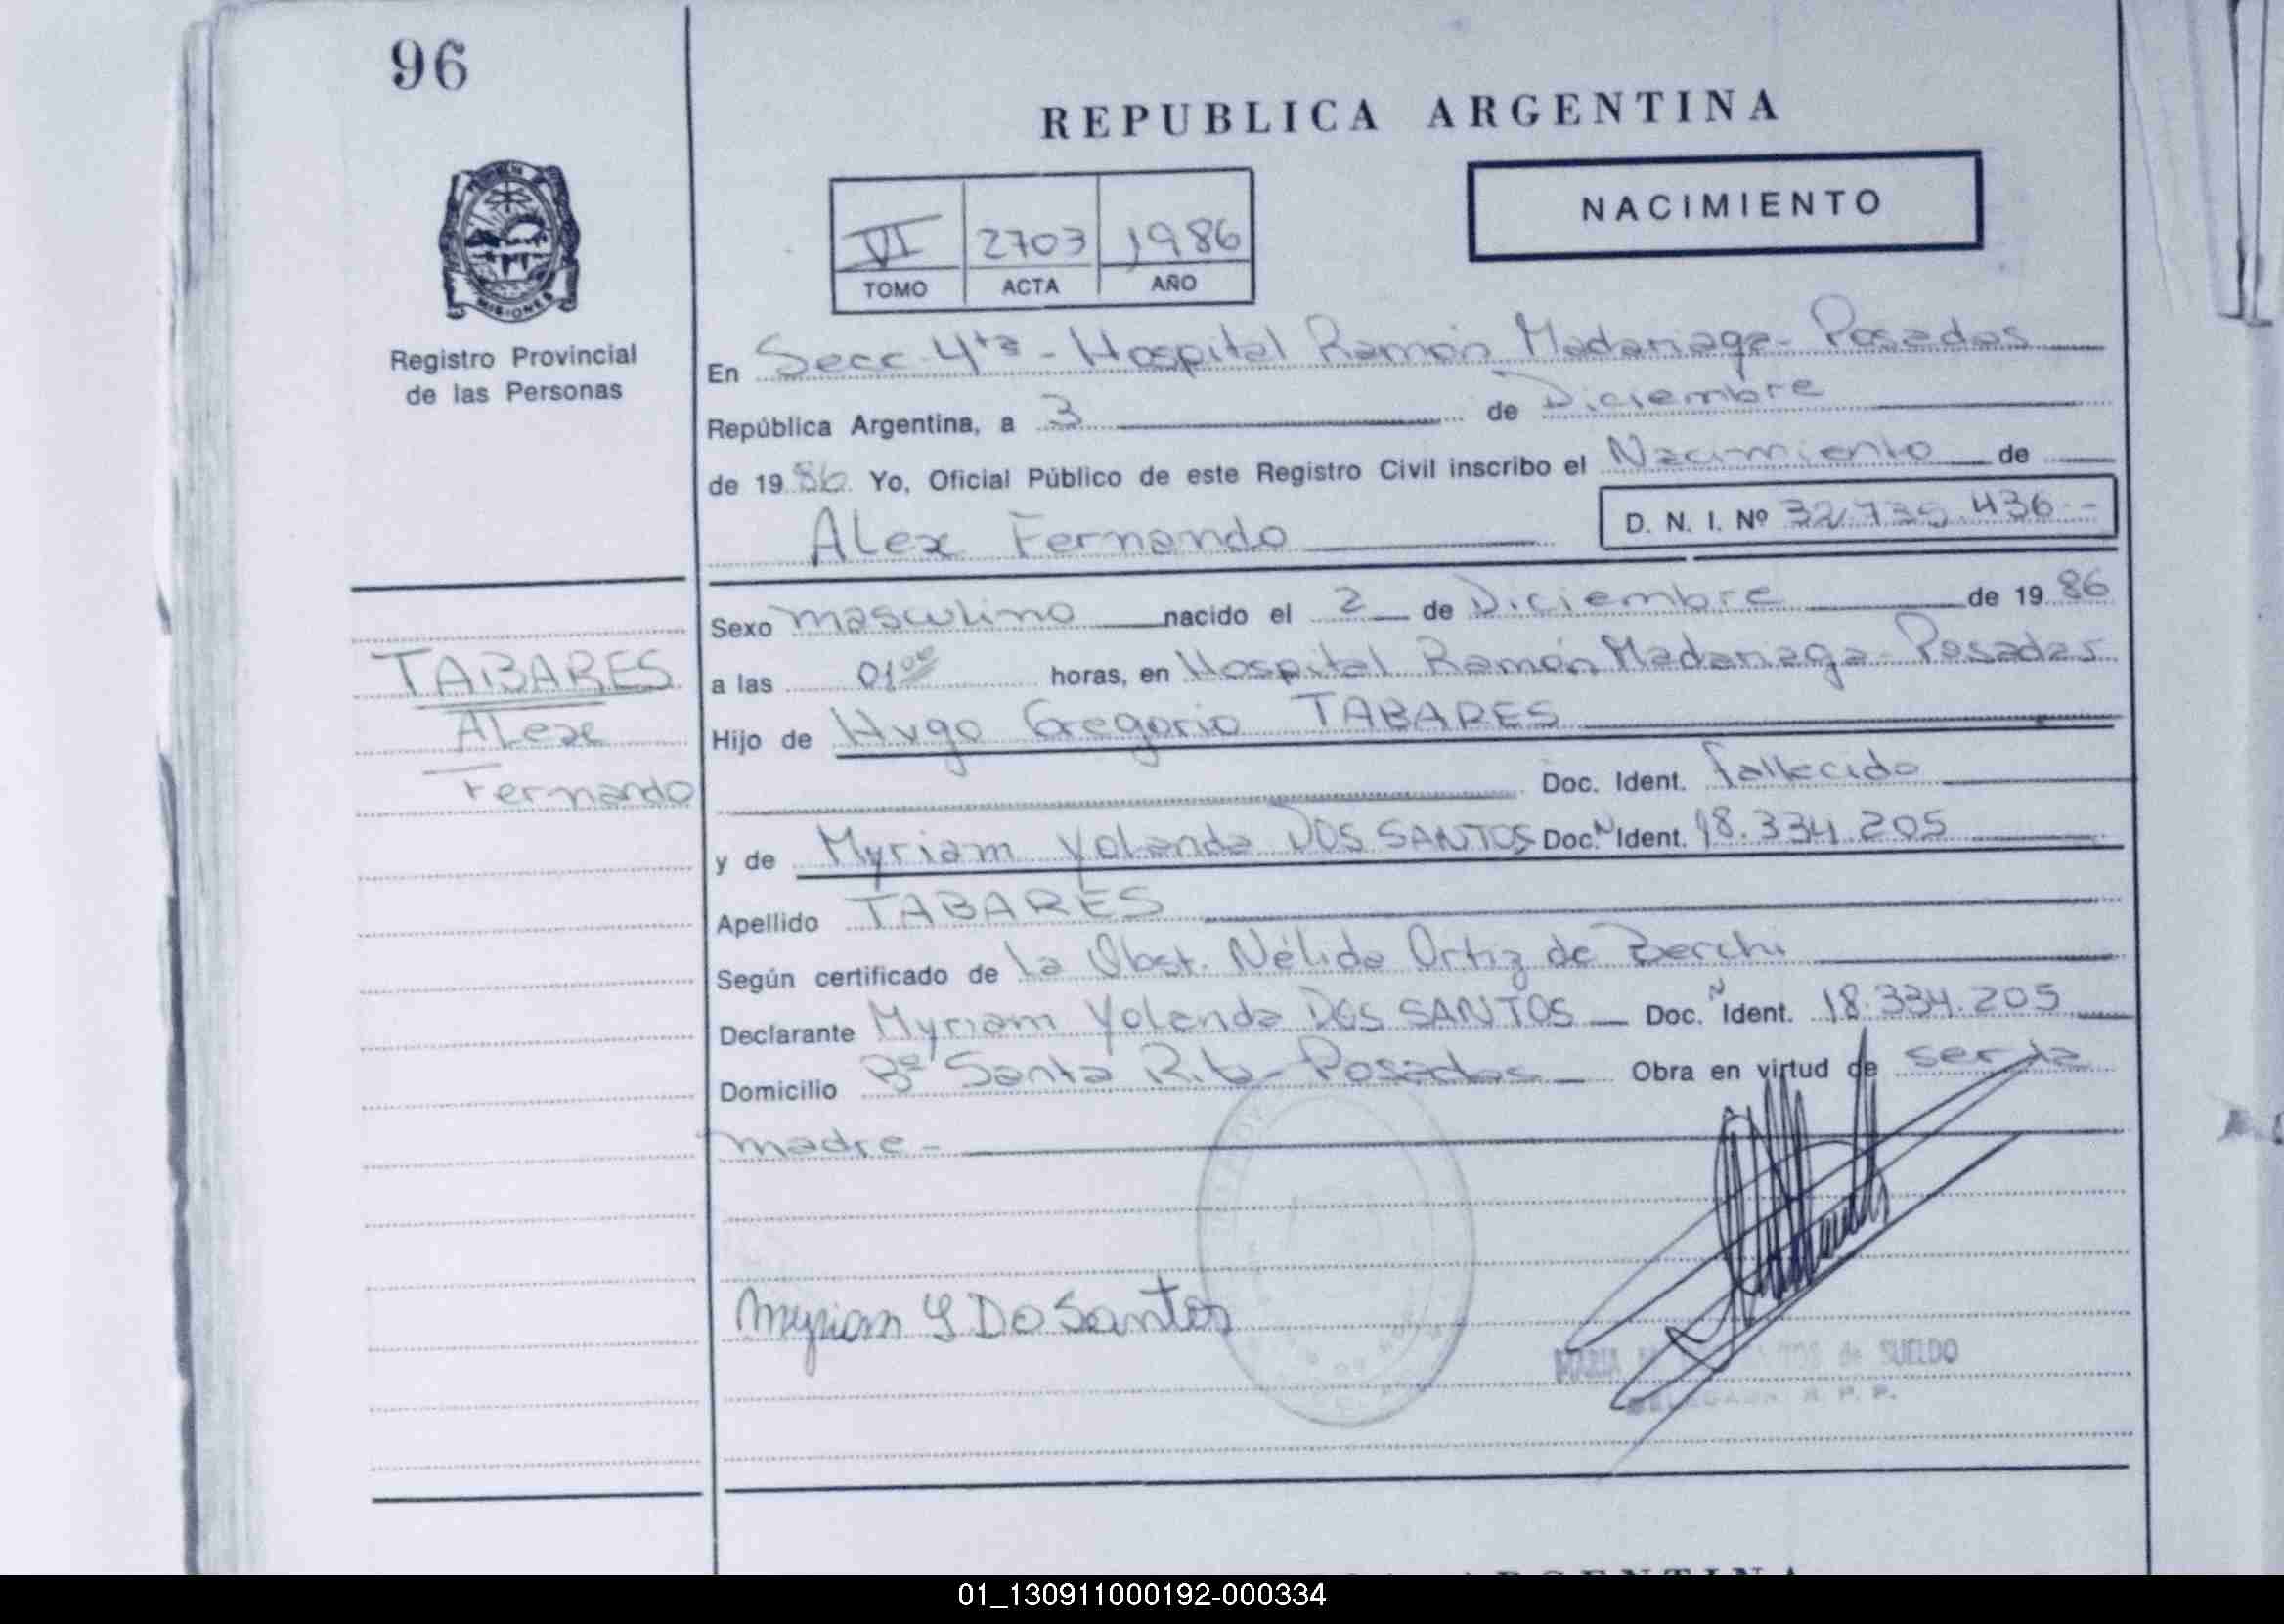 96
REPUBLICA ARGENTINA
NACIMIENTO
VI 2703 1986
TOMO ACTA AÑO
MISIONES
Registro Provincial
de las Personas
En Secc 4ta - Hospital Ramón Madariaga - Posadas
República Argentina, a 3 de Diciembre
de 1986 Yo, Oficial Público de este Registro Civil inscribo el Nacimiento de
Alex Fernando
D. N. I. Nº 32.735.436 -
TABARES
Alex
Fernando
Sexo masculino nacido el 2 de Diciembre de 1986
a las 01 00 horas, en Hospital Ramón Madariaga - Posadas
Hijo de Hugo Gregorio TABARES
Doc. Ident. fallecido
y de Myriam Yolanda DOS SANTOS Doc. N Ident. 18.334.205
Apellido TABARES
Según certificado de la Obst. Nélida Ortiz de Berchi
Declarante Myriam Yolanda DOS SANTOS Doc. N Ident. 18.334.205
Domicilio Bº Santa Rita - Posadas Obra en virtud de ser la
madre -
Myriam Y Do Santos
MARIA de SUELDO
R. P. P.
01_130911000192-000334